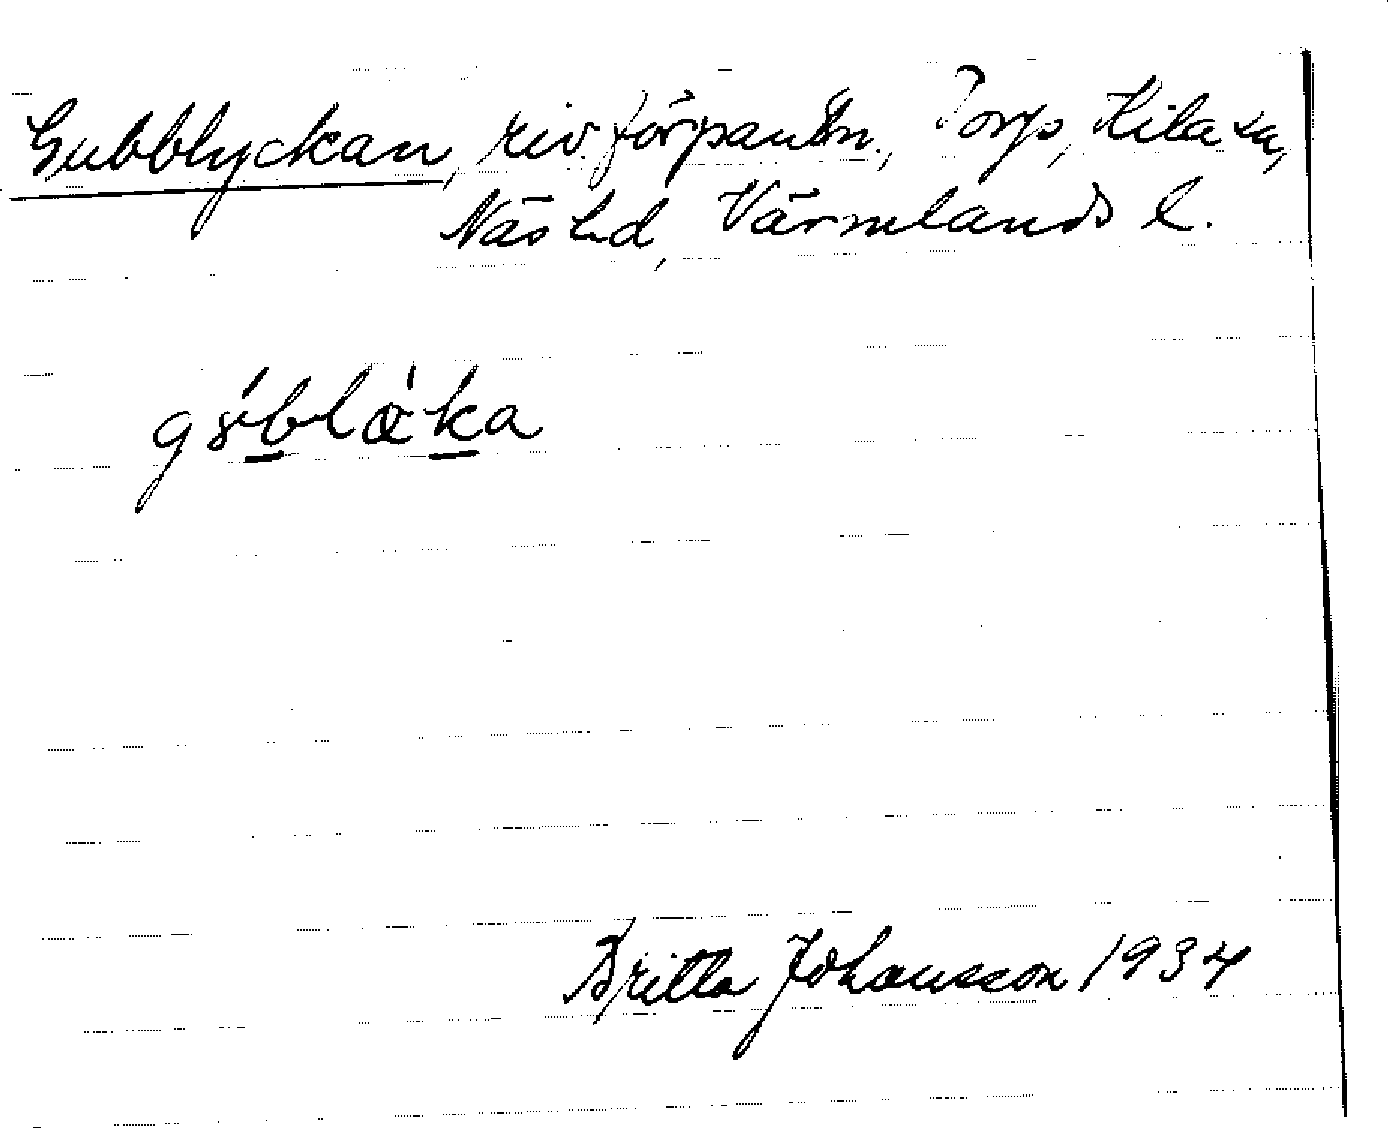 Gubblyckan, riv. förpantn., Torp, Kila sn,
Näs hd, Värmlands l.
Britta Johansson 1934